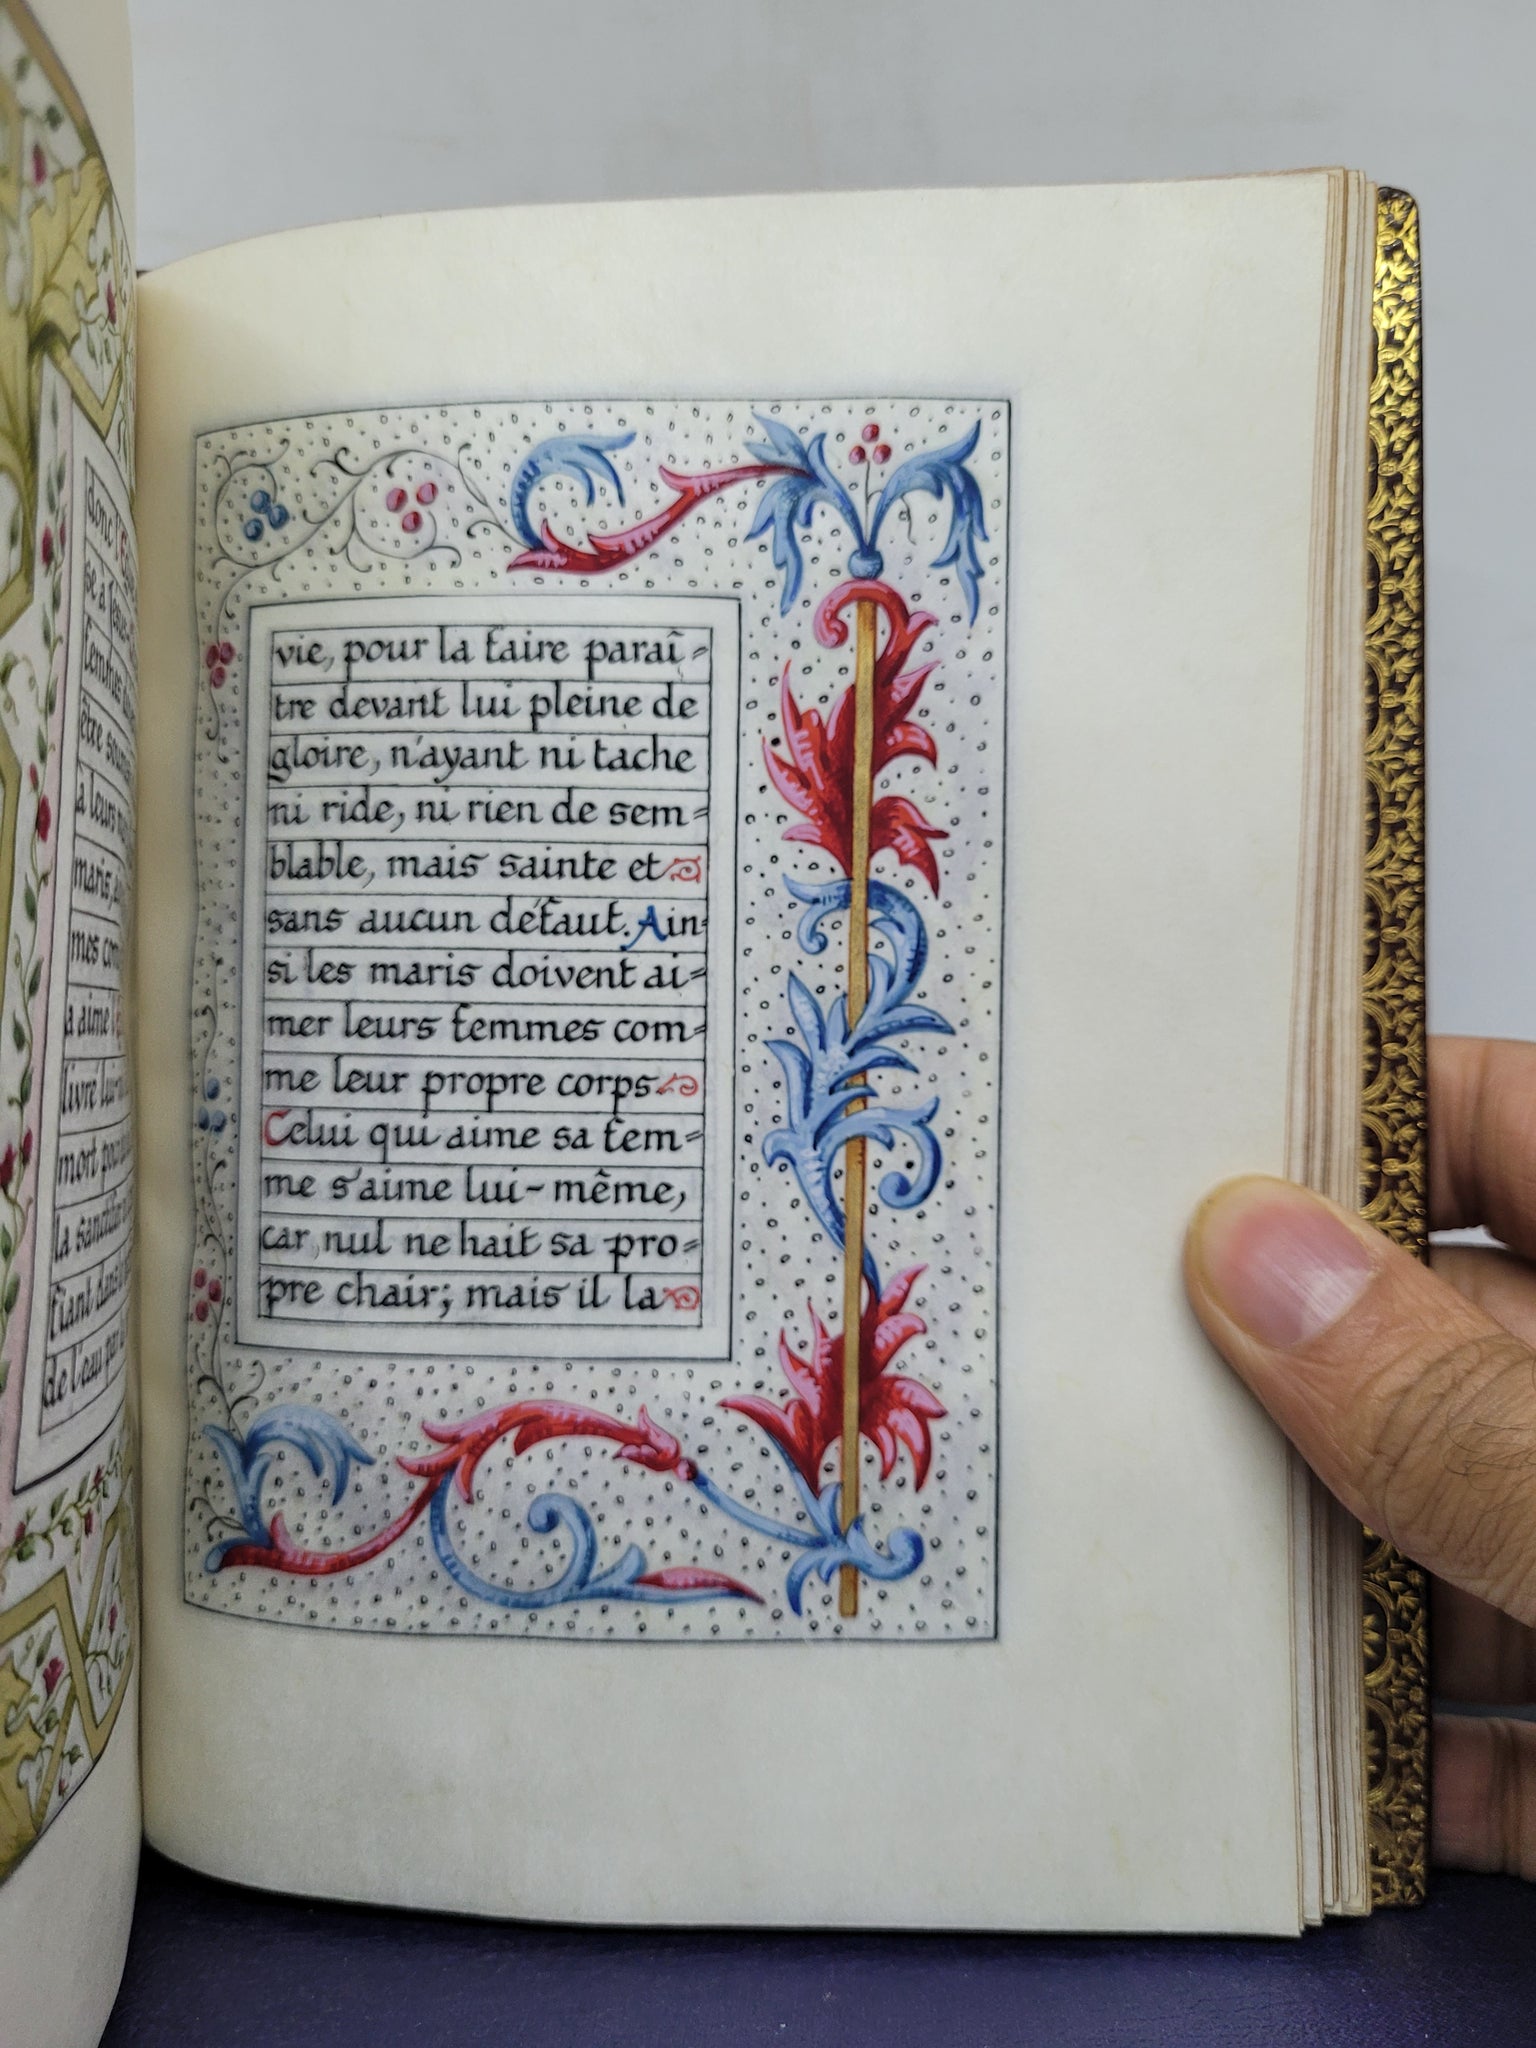 donc l'
se à Jésus
femmes
être soumi
à leurs
maris,
mes com
a aimé l'
livré lui
mort pour
la sanctifi
fiant dans
de l'eau par
vie, pour la faire paraî=
tre devant lui pleine de
gloire, n'ayant ni tache
ni ride, ni rien de sem=
blable, mais sainte et
sans aucun défaut. Ain=
si les maris doivent ai=
mer leurs femmes com=
me leur propre corps
Celui qui aime sa fem=
me s'aime lui-même,
car nul ne hait sa pro=
pre chair; mais il la